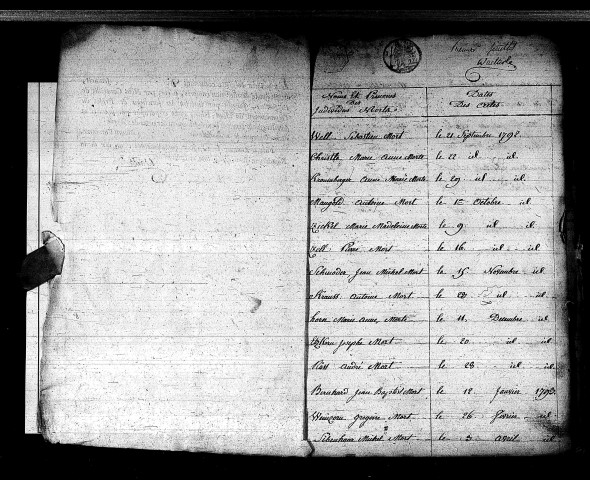 Premier feuillet
Noms Et Prenoms Dates
Des Des actes
Individus Morts
Well Sebastien Mort le 21 Septembre 1792
Christle Marie Anne Morte le 22 id id
Kronenberger Anne Marie Morte le 29 id id
Mangold Antoine Mort le 1er Octobre id
Marie Madeleine Morte le 9 id id
Zell Pierre Mort le 16 id id
Schneider Jean Michel Mort le 15 Novembre id
Krauss Antoine Mort le 22 id id
horn Marie Anne Morte le 11 Decembre id
Joseph Mort le 20 id id
Kass André Mort le 28 id id
Bernhard Jean Baptist Mort le 12 Janvier 1793
Gregoire Mort le 26 fevrier id
Michel Mort le 3 avril id